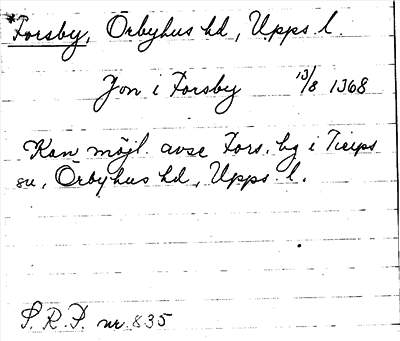 *Forsby, Örbyhus hd, Upps. l.
Jon i Forsby 13/8 1368
Kan möjl. avse Fors, bg i Tierps
sn, Örbyhus hd, Upps. l.
S.R.P. nr. 835